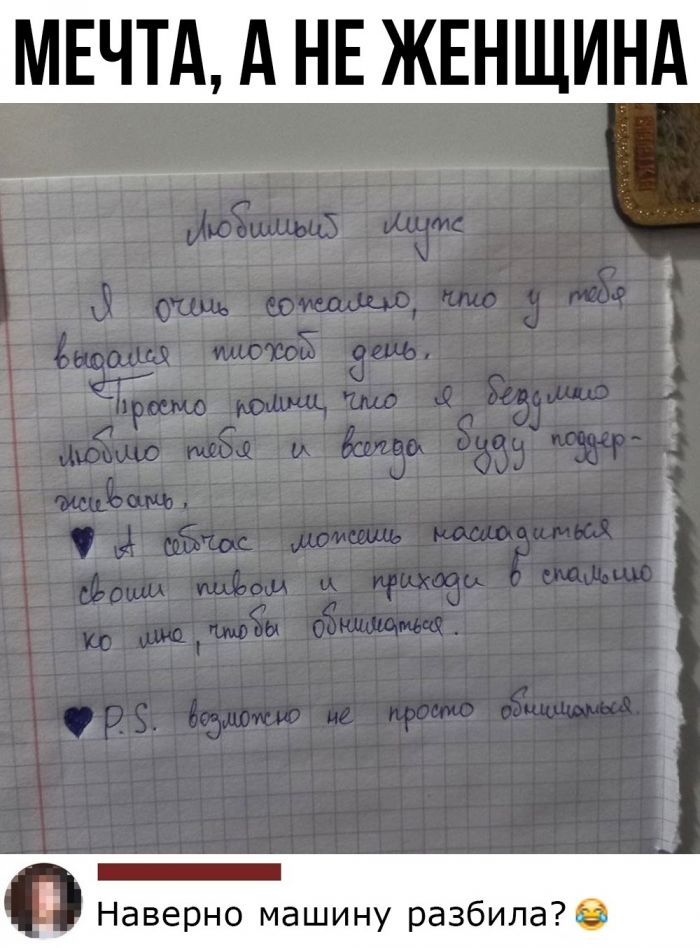 МЕЧТА, А НЕ ЖЕНЩИНА
Любимый муж
Я очень сожалею, что у тебя
выдался плохой день.
Просто помни, что я бездумно
люблю тебя и всегда буду поддер-
живать.
♥ А сейчас можешь насладиться
своим пивом и приходи в спальню
ко мне, чтобы обниматься.
♥ P.S. возможно не просто обниматься.
Наверно машину разбила?😂